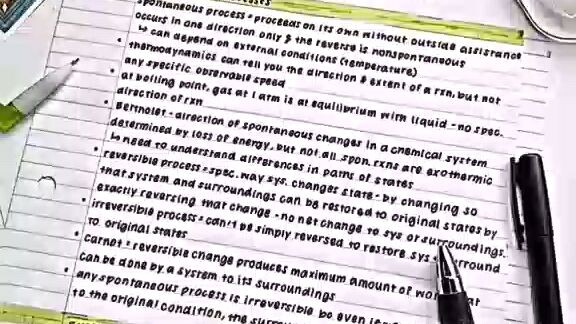 spontaneous process = proceeds on its own without outside assistance
occurs in one direction only & the reverse is nonspontaneous
↳ can depend on external conditions (temperature)
• thermodynamics can tell you the direction & extent of a rxn, but not
any specific observable speed
• at boiling point, gas at 1 atm is at equilibrium with liquid - no spec.
direction of rxn
• Berthelot - direction of spontaneous changes in a chemical system
determined by loss of energy, but not all spon. rxns are exothermic
↳ need to understand differences in paths of states
• reversible process = spec. way sys. changes state - by changing so
that system and surroundings can be restored to original states by
exactly reversing that change - no net change to sys or surroundings.
• irreversible process = can't be simply reversed to restore sys
to original states
• Carnot = reversible change produces maximum amount of
can be done by a system to its surroundings
• any spontaneous process is irreversible bc even
to the original condition, the